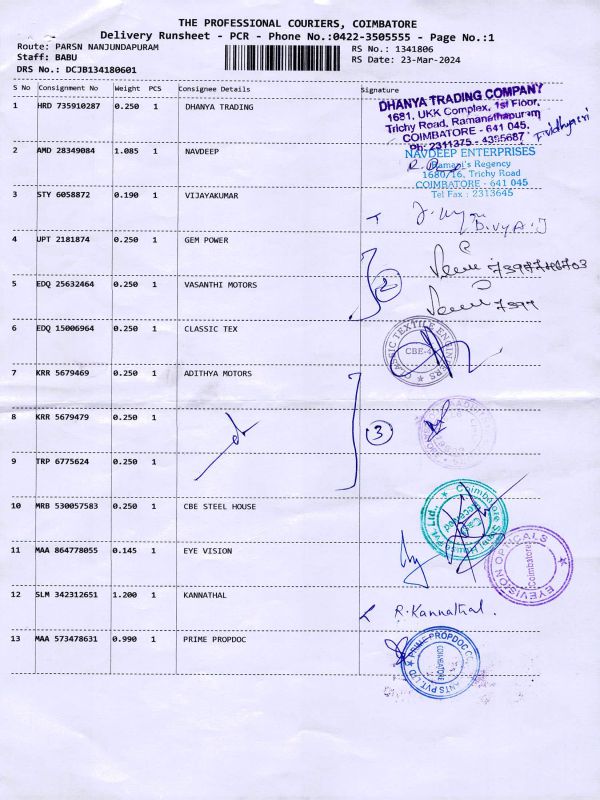 THE PROFESSIONAL COURIERS, COIMBATORE
Delivery Runsheet - PCR - Phone No.:0422-3505555 - Page No.:1
Route: PARSN NANJUNDAPURAM
RS No.: 1341806
Staff: BABU
RS Date: 23-Mar-2024
DRS No.: DCJB134180601
S No Consignment No Weight PCS Consignee Details Signature
1 HRD 735910287 0.250 1 DHANYA TRADING
DHANYA TRADING COMPANY
1681, UKK Complex, 1st Floor,
Trichy Road, Ramanathapuram
COIMBATORE - 641 045.
Ph: 2311375 - 4355687
2 AMD 28349084 1.085 1 NAVDEEP
NAVDEEP ENTERPRISES
Ramani's Regency
1680/16, Trichy Road
COIMBATORE - 641 045
Tel Fax : 2313645
3 STY 6058872 0.190 1 VIJAYAKUMAR
4 UPT 2181874 0.250 1 GEM POWER
2
5 EDQ 25632464 0.250 1 VASANTHI MOTORS
7397
6 EDQ 15006964 0.250 1 CLASSIC TEX
CLASSIC TEXTILE ENGINEERS
7 KRR 5679469 0.250 1 ADITHYA MOTORS
8 KRR 5679479 0.250 1
3
9 TRP 6775624 0.250 1
10 MRB 530057583 0.250 1 CBE STEEL HOUSE
Coimbatore Steel House Pvt Ltd.,
11 MAA 864778055 0.145 1 EYE VISION
EYEVISION OPTICALS
Coimbatore
12 SLM 342312651 1.200 1 KANNATHAL
R. Kannathal.
13 MAA 573478631 0.990 1 PRIME PROPDOC
PRIME PROPDOC
COIMBATORE